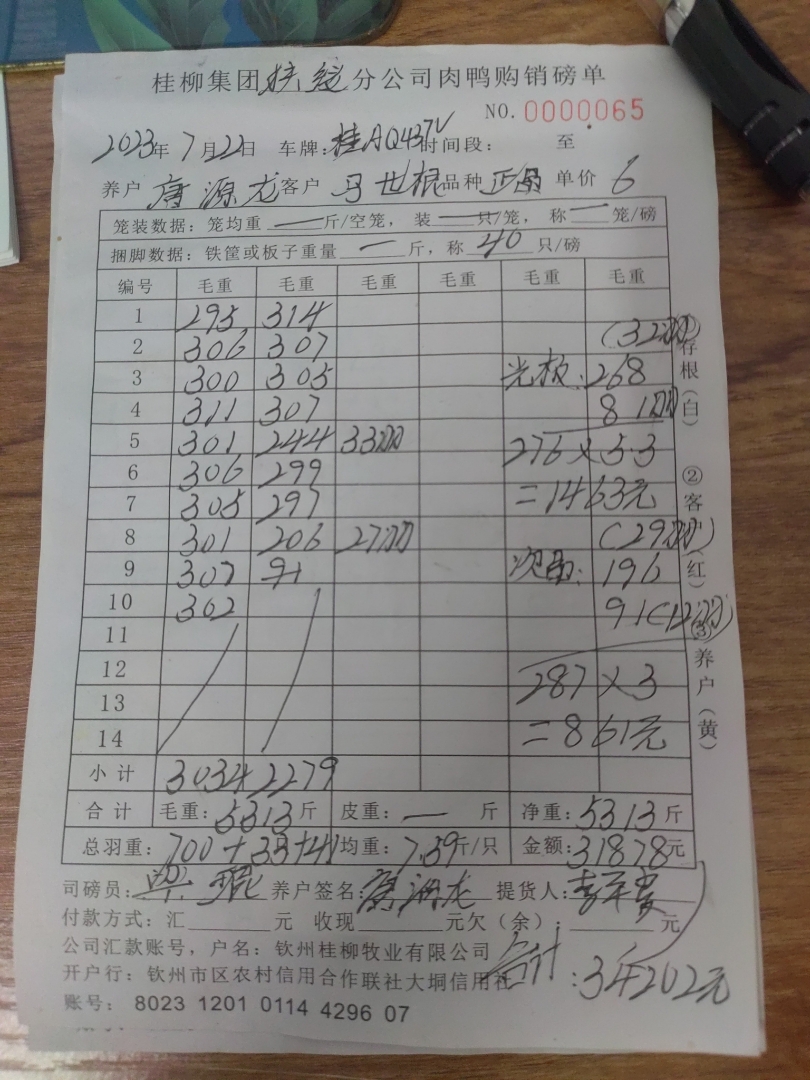 桂柳集团扶绥分公司肉鸭购销磅单
NO. 0000065
2023年7月22日 车牌：桂AQ437V 时间段： 至
养户 唐源龙 客户 马世根 品种 正品 单价 6
笼装数据：笼均重 — 斤/空笼， 装 — 只/笼， 称 — 笼/磅
捆脚数据：铁筐或板子重量 — 斤，称 40 只/磅
编号 毛重 毛重 毛重 毛重 毛重 毛重
1 295 314
2 306 307 (32羽)
3 300 305 光板：268
4 311 307 8 1羽
5 301 244 33羽 276×5.3
6 306 299
7 305 297 =1463元
8 301 206 27羽 (29羽)
9 307 91 次品：196
10 302 91(12羽)
11
12 287×3
13
14 =861元
小计 3034 2279
合计 毛重：5313斤 皮重：— 斤 净重：5313斤
总羽重：700+33+41 均重：7.59斤/只 金额：31878元
司磅员： 养户签名：唐源龙 提货人：
付款方式：汇 元 收现 元欠（余）： 元
公司汇款账号，户名：钦州桂柳牧业有限公司
开户行：钦州市区农村信用合作联社大垌信用社 合计：34202元
账号： 8023 1201 0114 4296 07
①存根（白） ②客（红） ③养户（黄）